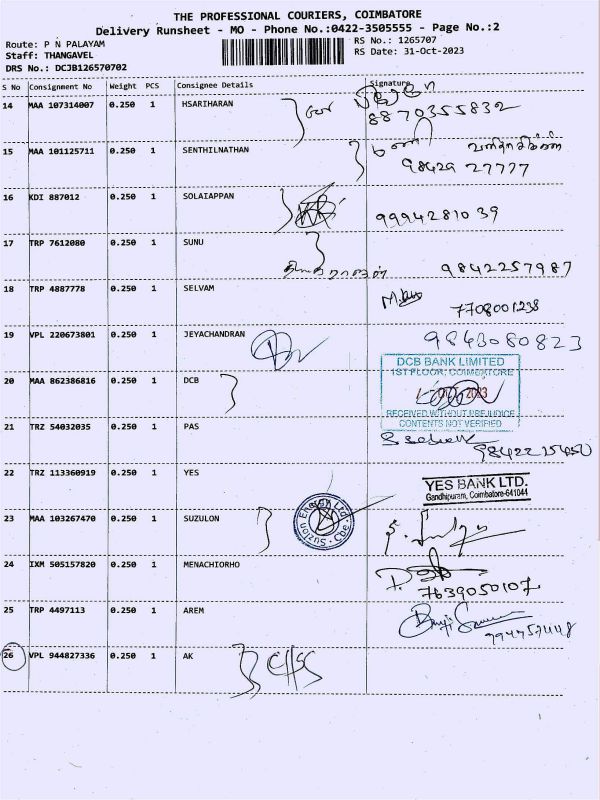 THE PROFESSIONAL COURIERS, COIMBATORE
Delivery Runsheet - MO - Phone No.:0422-3505555 - Page No.:2
Route: P N PALAYAM
RS No.: 1265707
Staff: THANGAVEL
RS Date: 31-Oct-2023
DRS No.: DCJB126570702
S No Consignment No Weight PCS Consignee Details Signature
14 MAA 107314007 0.250 1 HSARIHARAN
8870355832
15 MAA 101125711 0.250 1 SENTHILNATHAN
மணி
98429 27777
16 KDI 887012 0.250 1 SOLAIAPPAN
9994281039
17 TRP 7612080 0.250 1 SUNU
9842257987
18 TRP 4887778 0.250 1 SELVAM
7708001238
19 VPL 220673801 0.250 1 JEYACHANDRAN
9843080823
DCB BANK LIMITED
1ST FLOOR, COIMBATORE
20 MAA 862386816 0.250 1 DCB
RECEIVED WITHOUT PREJUDICE
CONTENTS NOT VERIFIED
21 TRZ 54032035 0.250 1 PAS
22 TRZ 113360919 0.250 1 YES
YES BANK LTD.
Gandhipuram, Coimbatore-641044
23 MAA 103267470 0.250 1 SUZULON
Suzlon Energy Ltd. Cbe.
24 IXM 505157820 0.250 1 MENACHIORHO
7639050107
25 TRP 4497113 0.250 1 AREM
26 VPL 944827336 0.250 1 AK